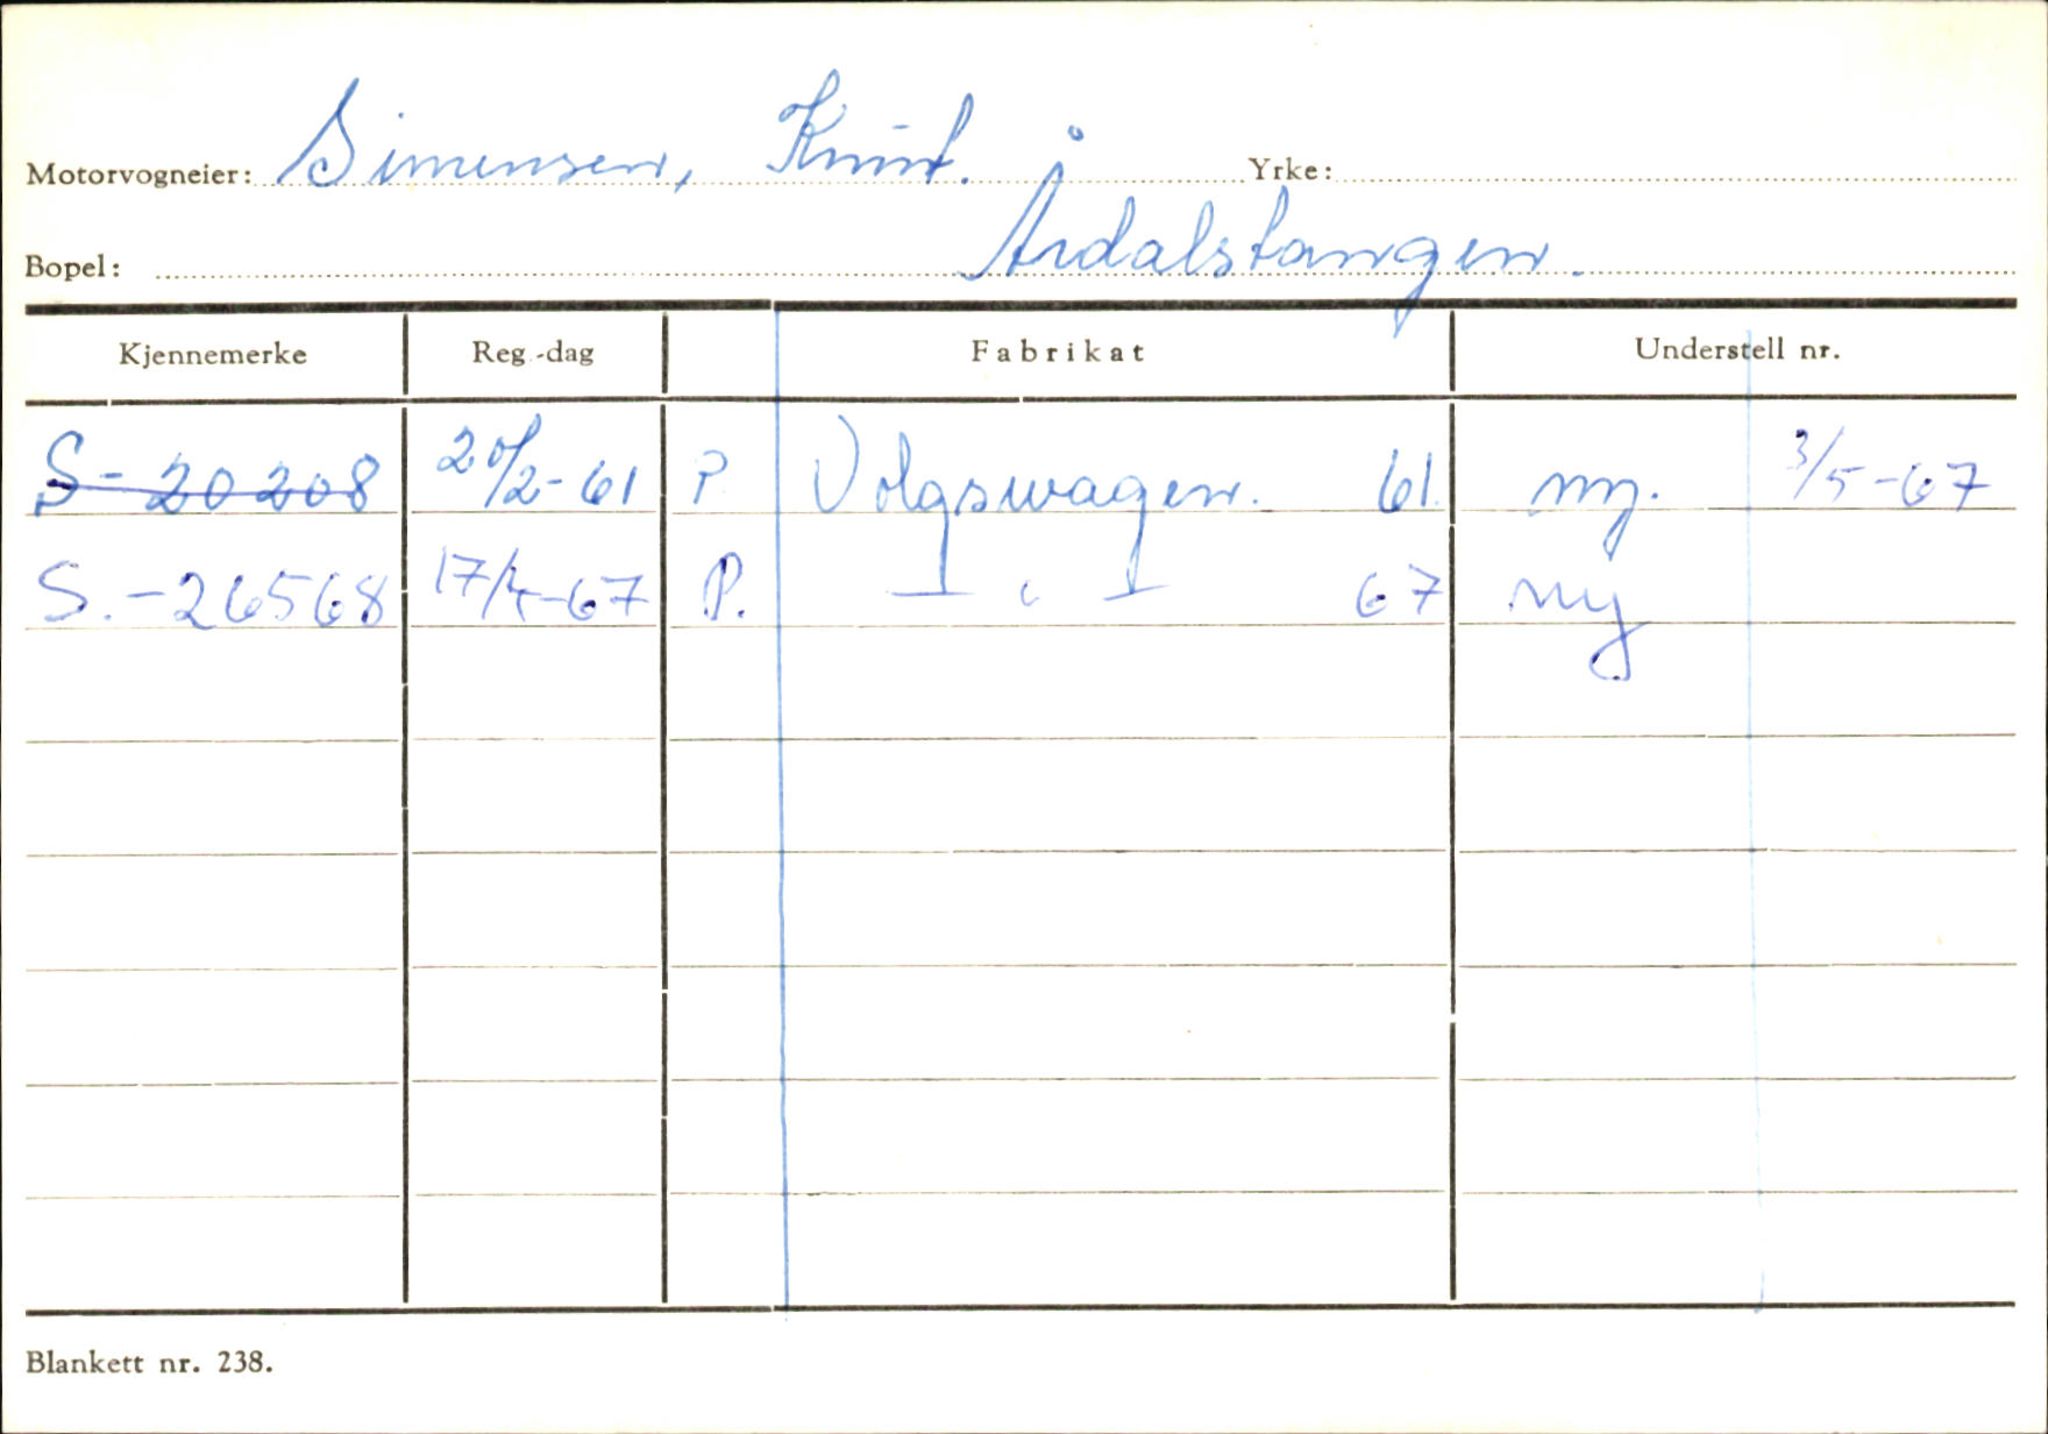 Motorvogneier: Simensen, Knut. Yrke:
Bopel: Årdalstangen.
Kjennemerke Reg.-dag Fabrikat Understell nr.
S-20208 20/2-61 P Volgswagen. 61 ny. 3/5-67
S.-26568 17/4-67 P. — " — 67 ny
Blankett nr. 238.